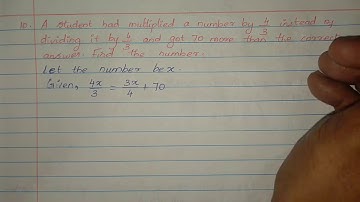 10. A student had multiplied a number by 4/3 instead of
dividing it by 4/3 and got 70 more than the correct
answer. Find the number.
Let the number be x.
Given, 4x/3 = 3x/4 + 70